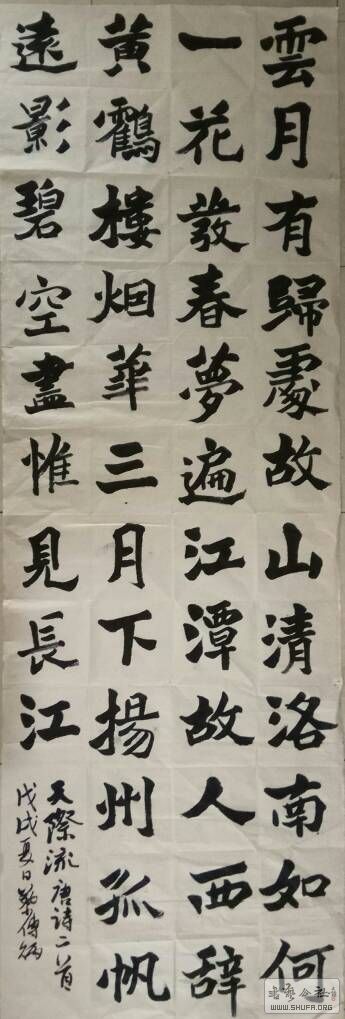 雲月有歸處故山清洛南如何
一花發春夢遍江潭故人西辞
黄鶴樓烟華三月下揚州孤帆
遠影碧空盡惟見長江
天際流唐诗二首
戊戌夏日
WWW.SHUFA.ORG